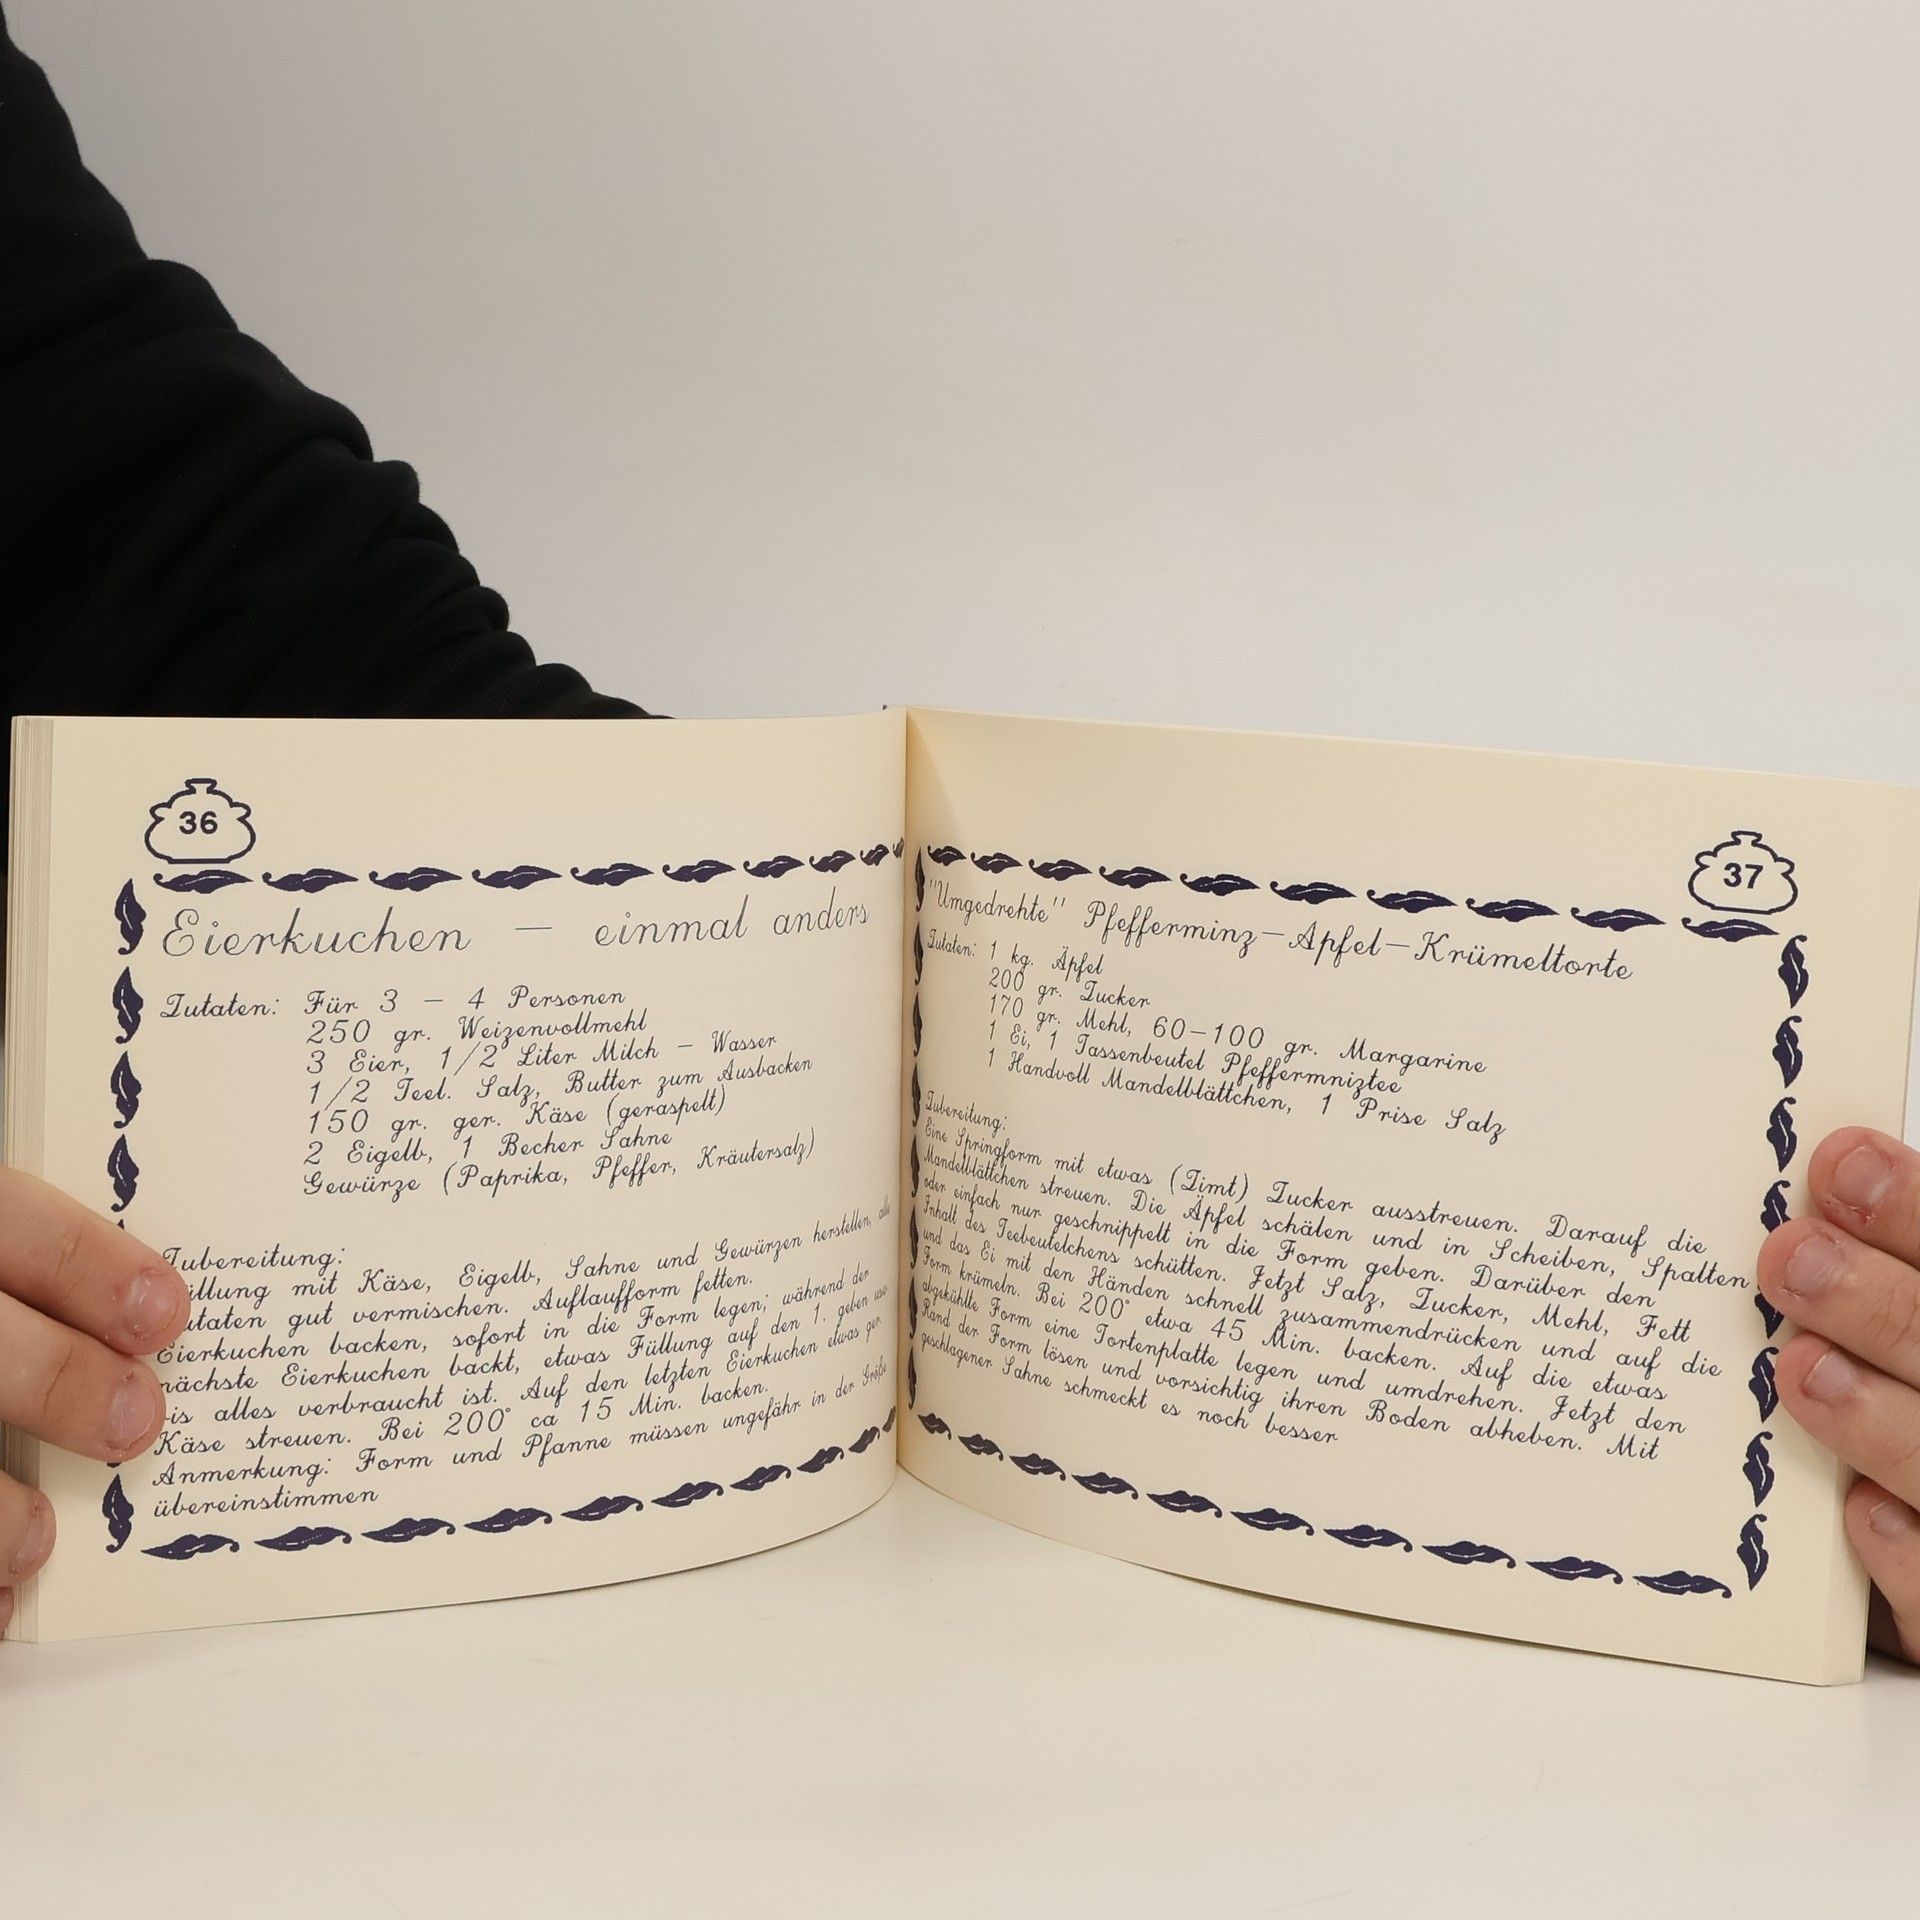 36
Eierkuchen – einmal anders
Zutaten: Für 3 – 4 Personen
250 gr. Weizenvollmehl
3 Eier, 1/2 Liter Milch – Wasser
1/2 Teel. Salz, Butter zum Ausbacken
150 gr. ger. Käse (geraspelt)
2 Eigelb, 1 Becher Sahne
Gewürze (Paprika, Pfeffer, Kräutersalz)
Zubereitung:
üllung mit Käse, Eigelb, Sahne und Gewürzen herstellen, alle
utaten gut vermischen. Auflaufform fetten.
Eierkuchen backen, sofort in die Form legen; während der
nächste Eierkuchen backt, etwas Füllung auf den 1. geben usw.
is alles verbraucht ist. Auf den letzten Eierkuchen etwas ger.
Käse streuen. Bei 200° ca 15 Min. backen.
Anmerkung: Form und Pfanne müssen ungefähr in der Größe
übereinstimmen
37
"Umgedrehte" Pfefferminz–Apfel–Krümeltorte
Zutaten: 1 kg. Äpfel
200 gr. Zucker
170 gr. Mehl, 60–100 gr. Margarine
1 Ei, 1 Tassenbeutel Pfeffermniztee
1 Handvoll Mandelblättchen, 1 Prise Salz
Zubereitung:
Eine Springform mit etwas (Zimt) Zucker ausstreuen. Darauf die
Mandelblättchen streuen. Die Äpfel schälen und in Scheiben, Spalten
oder einfach nur geschnippelt in die Form geben. Darüber den
Inhalt des Teebeutelchens schütten. Jetzt Salz, Zucker, Mehl, Fett
und das Ei mit den Händen schnell zusammendrücken und auf die
Form krümeln. Bei 200° etwa 45 Min. backen. Auf die etwas
abgekühlte Form eine Tortenplatte legen und umdrehen. Jetzt den
Rand der Form lösen und vorsichtig ihren Boden abheben. Mit
geschlagener Sahne schmeckt es noch besser